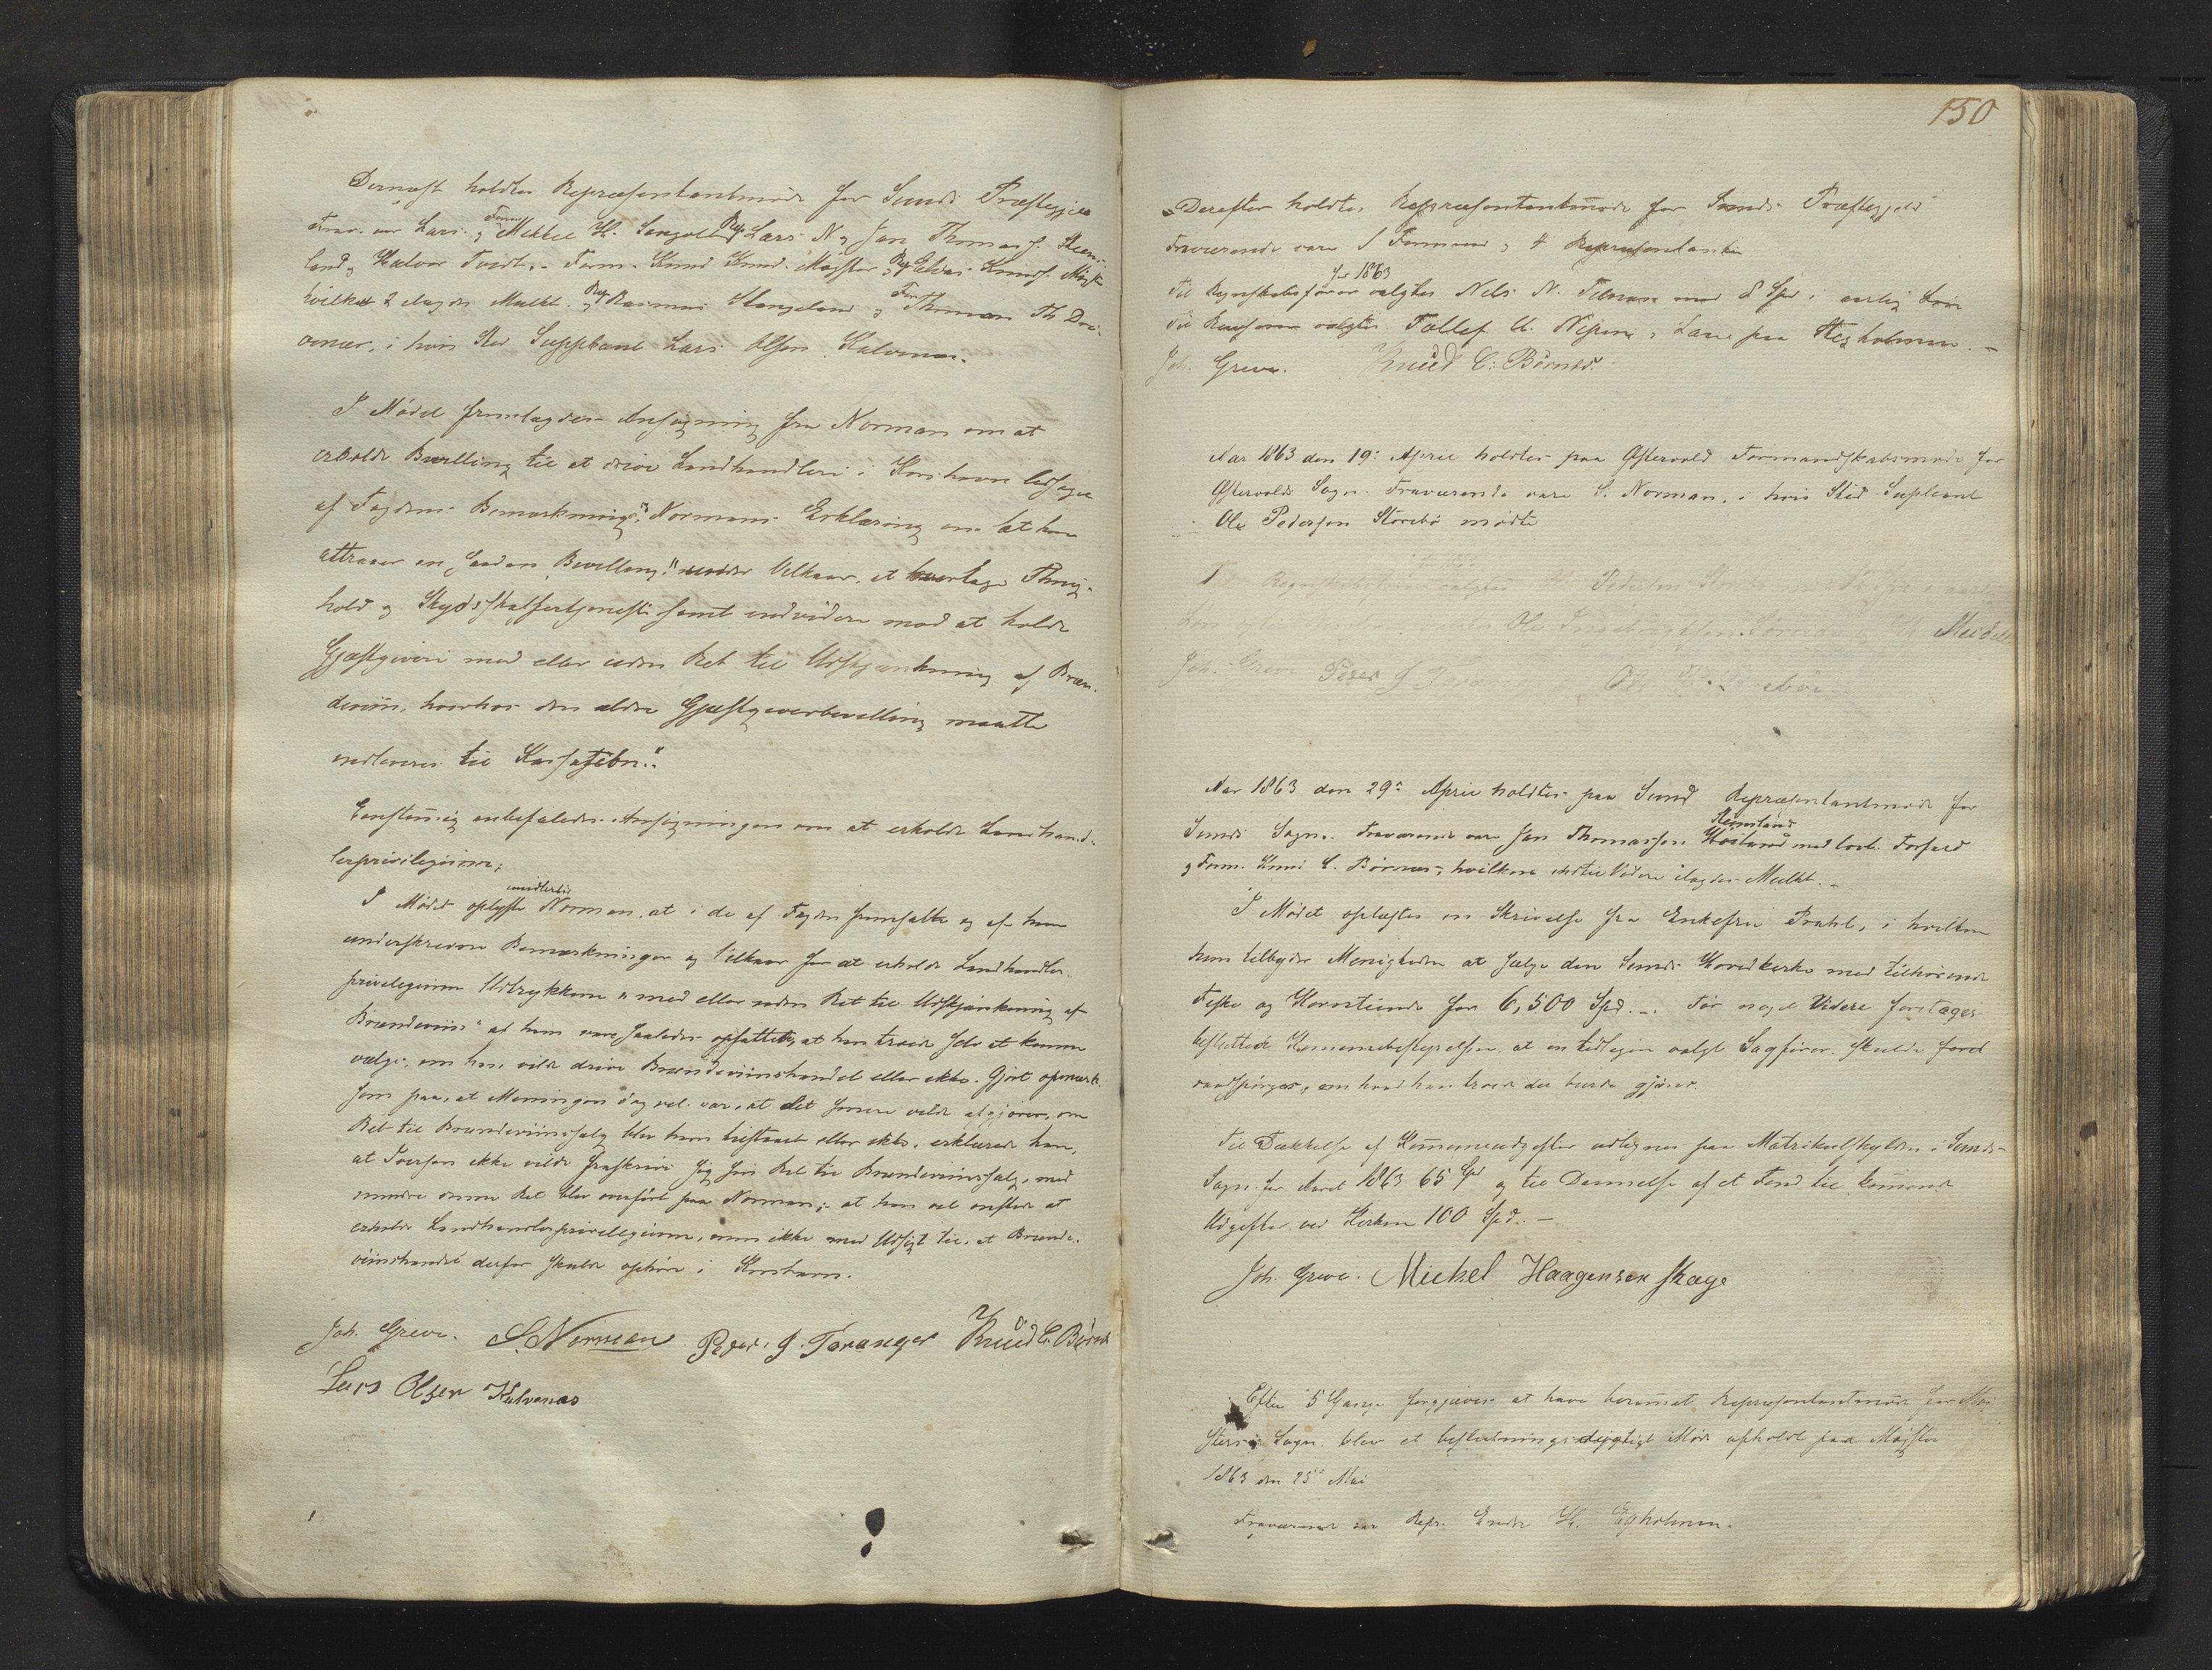 Dernæst holdtes Repræsentantmøde for Sunds Præstegjeld
Frav. var Lars og Form. Mikkel H. Rep. Lars N og Jan Thomass. Steens-
land, Halvor Tvedt, Form. Knud Knud. Møgster, Rep. Knuds. Møgster
hvilke 2 ilagdes Mulkt. Rep. Rasmus og Form. Thomas Th
i hvis Sted Suppleant Lars Olsen Kalvenes.
I Mødet fremlagdes Ansøgning fra Norman om at
erholde Bevilling til at drive Landhandleri i Korshavn ledsaget
af Fogdens Bemærkning "Normans Erklæring om at han
attraaer en saadan Bevilling" under Vilkaar at overtage Thing-
hold og SkydsskafferTjeneste samt endvidere mod at holde
Gjæstgiveri med eller uden Ret til Udskjænkning af Bræn-
deviin, hvorhos den ældre Gjæstgiverbevilling maatte
indleveres til Kassation".
Eenstemmig anbefaledes Ansøgningen om at erholde Landhand-
lerprivilegium;
I Mødet oplyste imidlertid Norman, at i de af Fogden fremsatte og af ham
underskrevne Bemærkninger og Vilkaar for at erholde Landhandler-
privilegium Udtrykkene "med eller uden Ret til Udskjænkning af
Brændeviin" af ham vare saaledes opfattede, at han troede selv at kunne
vælge, om han vilde drive Brændeviinshandel eller ikke. Gjort opmærk-
som paa, at Meningen dog vel var, at det senere vilde afgjøres, om
Ret til Brændeviinssalg blev ham tilstaaet eller ikke, erklærede han,
at Iversen ikke vilde fraskrive sig sin Ret til Brændeviinssalg, med
mindre denne Ret blev overført paa Norman; at han vel ønskede at
erholde Landhandlerprivilegium, men ikke med Udsigt til, at Brænde-
viinshandel derfor skulde ophøre i Korshavn.
Joh. Greve. S. Norman Peder J. Foranger Knud C. Børnes
Lars Olsen Kalvenes
150
Derefter holdtes Repræsentantmøde for Sunds Præstegjeld
Fraværende vare 1 Formand og 4 Repræsentanter
Til Regnskabsfører for 1863 valgtes Nils N. Telnæs med 8 Spd i aarlig Løn
Til Revisorer valgtes Tollef A. Nipen og Lars paa Hegholmen.
Joh. Greve. Knud C: Børnes.
Aar 1863 den 19: April holdtes paa Østervold Formandskabsmøde for
Østervolds Sogn. Fraværende vare S. Norman, i hvis Sted Supleant
Ole Pedersen Storebø mødte
Til Regnskabsfører valgtes Pedersen
Løn og Ole Ingebrigtsen Møvik
Joh. Greve Peder J Foranger Ole
Aar 1863 den 29: April holdtes paa Sund Repræsentantmøde for
Sunds Sogn. Fraværende vare Jan Thomassen Steensland med lovl. Forfald
og Form. Knud C. Børnes, hvilken indtil Videre ilagdes Mulkt.
I Mødet oplæstes en Skrivelse fra Enkefru Prahl, i hvilken
hun tilbyder Menigheden at sælge den Sunds Hovedkirke med tilhørende
Fiske og Korntiende for 6,500 Spd. Før noget Videre foretages
besluttede Kommunebestyrelsen, at en tidligere valgt Sagfører skulde først
raadspørges, om hvad han troede der burde gjøres.
Til Dækkelse af Kommuneudgifter udlignes paa Matrikulskylden i Sunds
Sogn for Aaret 1863 65 Spd og til Dannelse af et Fond til kommende
Udgifter ved Kirken 100 Spd.
Joh. Greve. Mickel Haagensen Skage
Efter 5 Gange forgjæves at have berammet Repræsentantmøde for Møg-
sters Sogn, blev et beslutningsdygtigt Møde afholdt paa Møgster
1863 den 25de Mai
Fraværende var Repr. Endre H. Egholmen.